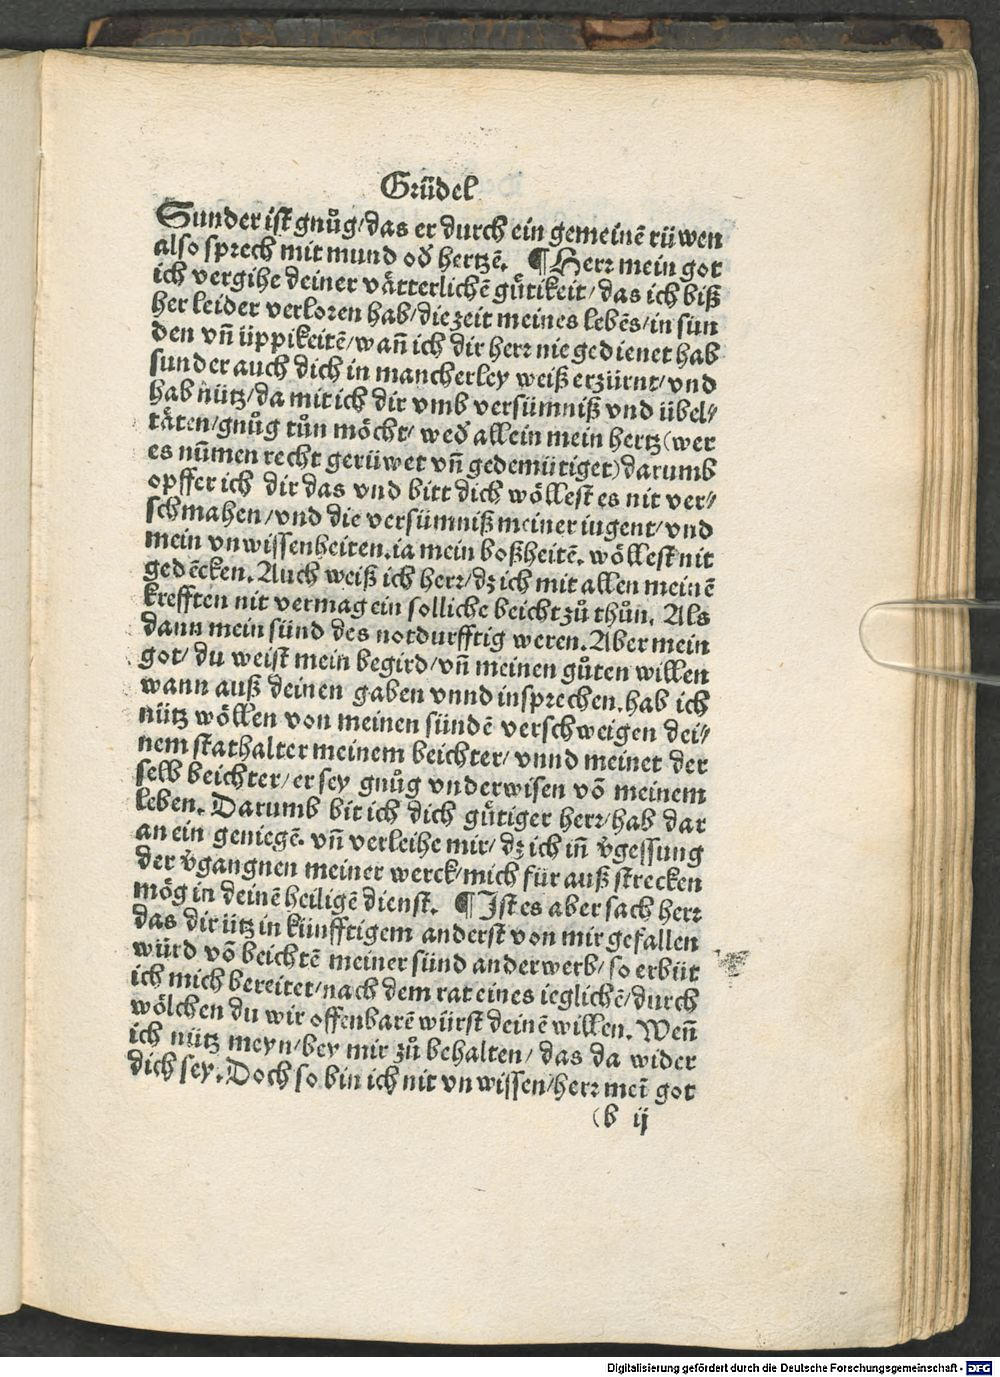 Gründel
Sunder ist gnůg/das er durch ein gemeinē rüwen
also sprech mit mund oď hertzē. ¶ Herr mein got
ich vergihe deiner vätterlichē gůtikeit/das ich biß
her leider verloren hab/die zeit meines lebēs/in sün
den vñ üppikeitē/wañ ich dir herr nie gedienet hab
sunder auch dich in mancherley weiß erzürnt/vnd
hab nütz/da mit ich dir vmb versümniß vnd übel⸗
täten/gnůg tůn möcht/weď allein mein hertz(wer
es nūmen recht gerüwet vñ gedemütiget)darumb
opffer ich dir das vnd bitt dich wöllest es nit ver⸗
schmahen/vnd die versümniß meiner iugent/vnd
mein vnwissenheiten.ia mein boßheitē. wöllest nit
gedēcken. Auch weiß ich herr/dz ich mit allen meinē
krefften nit vermag ein solliche beicht zů thůn. Als
dann mein sünd des notdurfftig weren. Aber mein
got/du weist mein begird/vñ meinen gůten willen
wann auß deinen gaben vnnd insprechen.hab ich
nütz wöllen von meinen sündē verschweigen dei⸗
nem stathalter meinem beichter/vnnd meinet der
selb beichter/er sey gnůg vnderwisen vō meinem
leben. Darumb bit ich dich gůtiger herr/hab dar
an ein geniegē. vñ verleihe mir/dz ich iñ v̌gessung
der v̌gangnen meiner werck/mich für auß strecken
mög in deinē heiligē dienst. ¶ Ist es aber sach herr
das dir ütz in künfftigem anderst von mir gefallen
würd vō beichtē meiner sünd anderwerb/so erbüt
ich mich bereitet/nach dem rat eines ieglichē/durch
wölchen du wir offenbarē würst deinē willen. Weñ
ich nütz meyn/bey mir zů behalten/das da wider
dich sey. Doch so bin ich nit vnwissen/herr meī got
(b ij
Digitalisierung gefördert durch die Deutsche Forschungsgemeinschaft - DFG